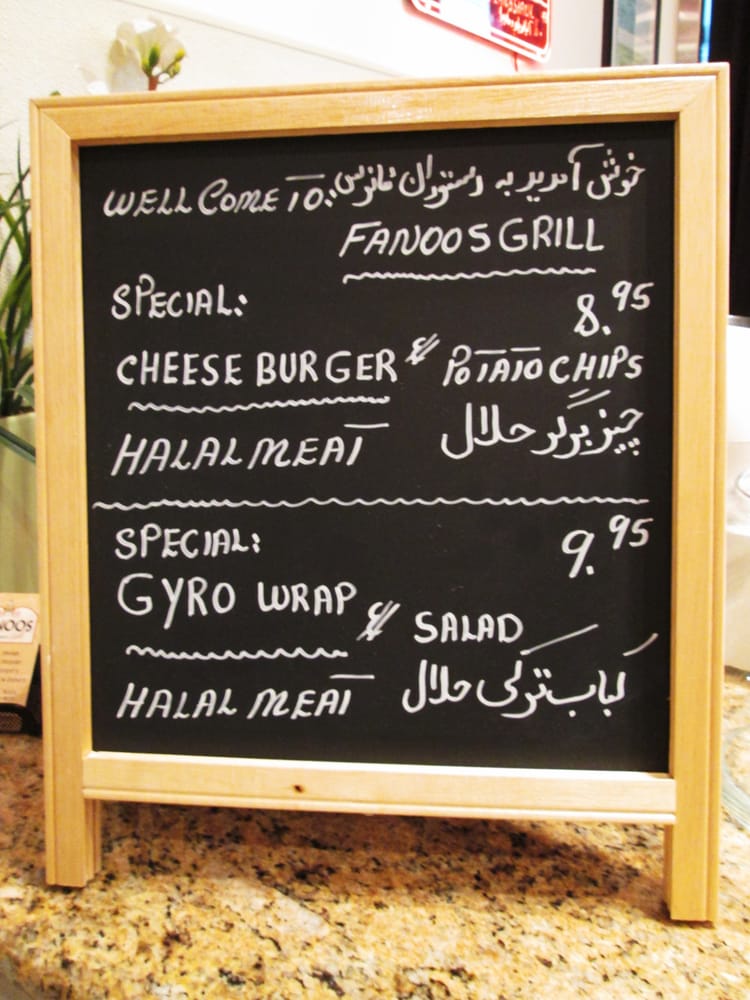 WELL COME TO: خوش آمدید به رستوران فانوس
FANOOS GRILL
SPECIAL: 8.95
CHEESE BURGER & POTATO CHIPS
HALAL MEAT چیزبرگر حلال
SPECIAL: 9.95
GYRO WRAP & SALAD
HALAL MEAT کباب ترکی حلال
NOOS